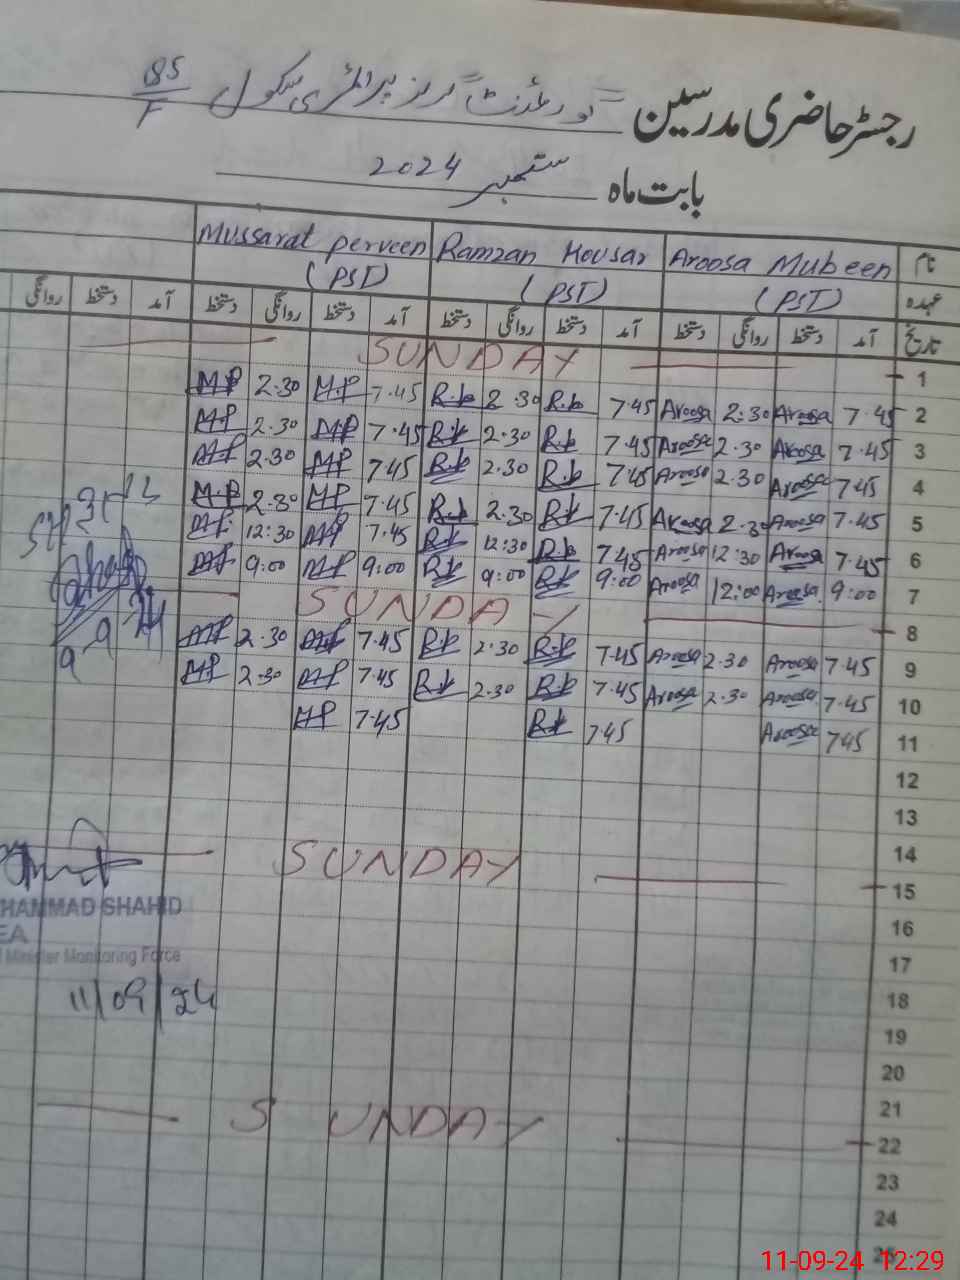 رجسٹر حاضری مدرسین گورنمنٹ گرلز پرائمری سکول 85/F
بابت ماہ ستمبر 2024
نام Aroosa Mubeen Ramzan Kousar Mussarat perveen
عہدہ (PST) (PST) (PST)
تاریخ آمد دستخط روانگی دستخط آمد دستخط روانگی دستخط آمد دستخط روانگی دستخط آمد دستخط روانگی
1 SUNDAY
2 7.45 Aroosa 2:30 Aroosa 7.45 R.k 2.30 R.k 7.45 M.P 2.30 M.P
3 7.45 Aroosa 2.30 Aroosa 7.45 R.k 2.30 R.k 7.45 M.P 2.30 M.P
4 7.45 Aroosa 2.30 Aroosa 7.45 R.k 2.30 R.k 7.45 M.P 2.30 M.P
5 7.45 Aroosa 2.30 Aroosa 7.45 R.k 2.30 R.k 7.45 M.P 2.30 M.P
6 7.45 Aroosa 12:30 Aroosa 7.45 R.k 12:30 R.k 7.45 M.P 12:30 M.P
7 9:00 Aroosa 12:00 Aroosa 9:00 R.k 9:00 R.k 9:00 M.P 9:00 M.P
8 SUNDAY
9 7.45 Aroosa 2.30 Aroosa 7.45 R.k 2.30 R.k 7.45 M.P 2.30 M.P
10 7.45 Aroosa 2.30 Aroosa 7.45 R.k 2.30 R.k 7.45 M.P 2.30 M.P
11 7.45 Aroosa 7.45 R.k 7.45 M.P
12
13
14
15 SUNDAY
16
17
18
19
20
21
22 SUNDAY
23
24
25
HAMMAD SHAHID
EA
Minister Monitoring Force
11/09/24
11-09-24 12:29